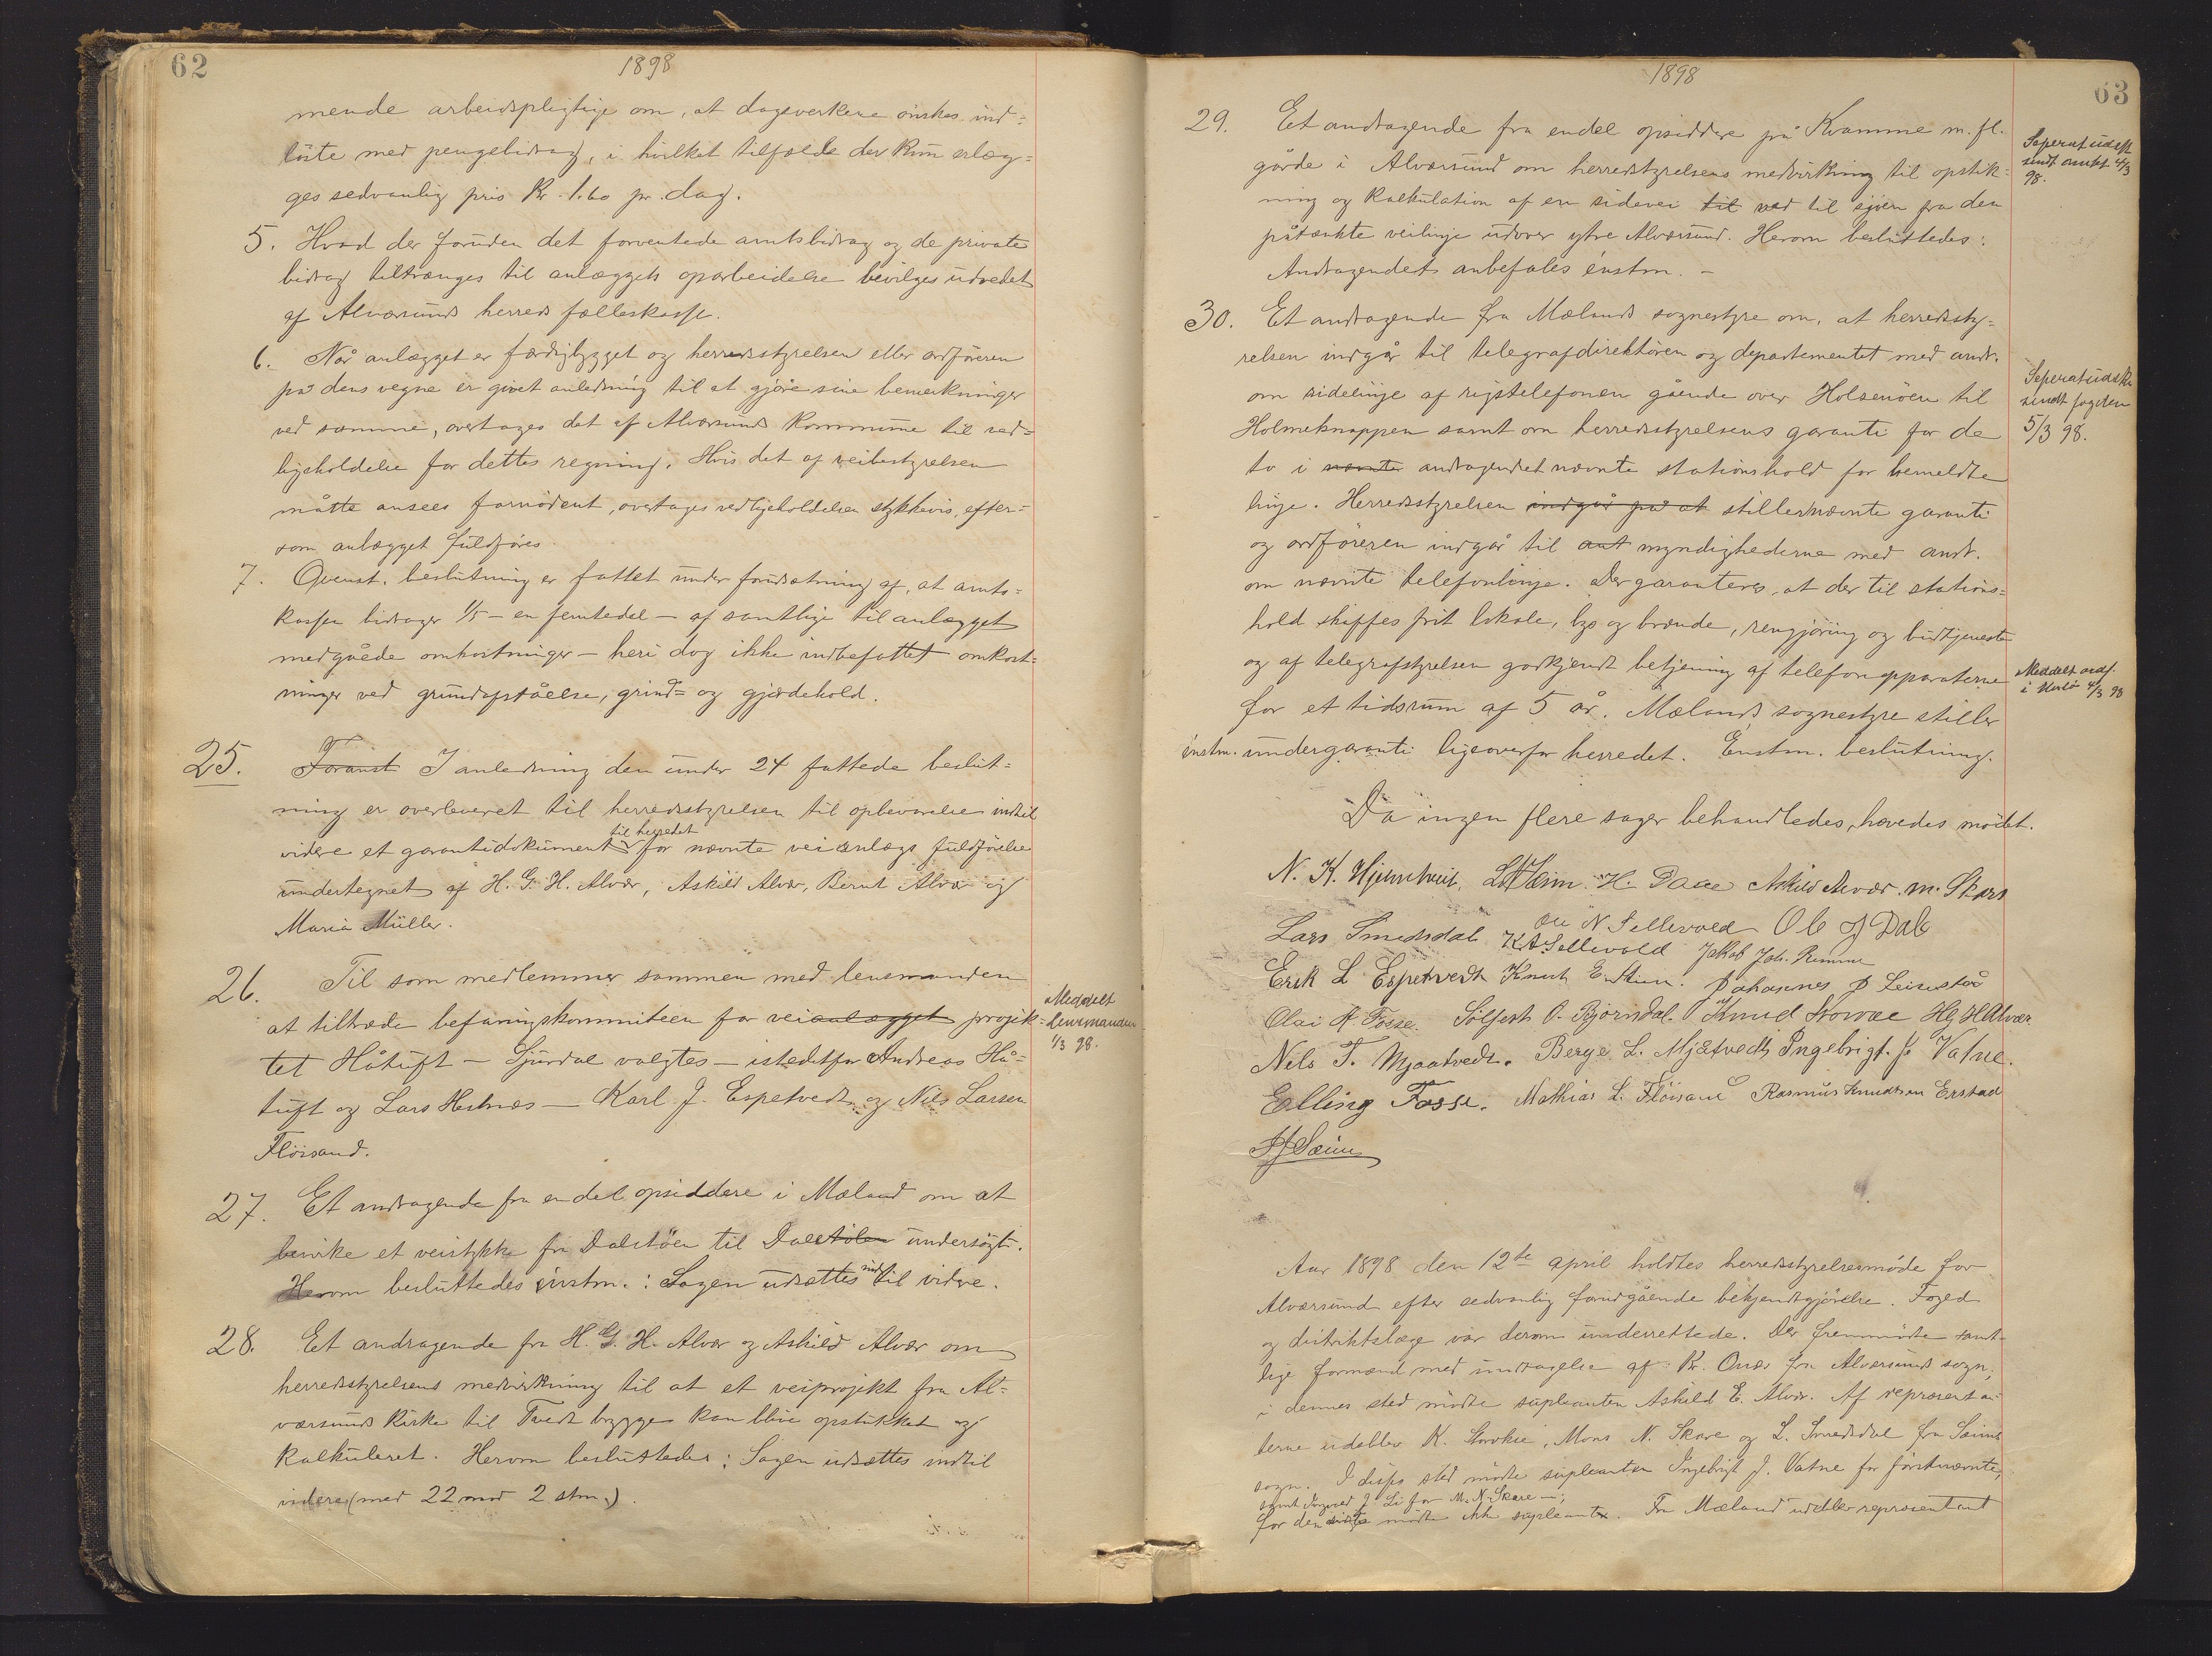 62
1898
mende arbeidspligtige om, at dagsverkene ønskes ind=
løste med pengebidrag, i hvilket tilfælde der kun erlæg=
ges sedvanlig pris Kr. 1.60 pr. dag.
5. Hvad der foruden det forventede amtsbidrag og de private
bidrag tiltrænges til anlæggets oparbeidelse bevilges udredet
af Alværsunds herreds fælleskasse.
6. Når anlægget er færdigbygget og herredsstyrelsen eller ordføreren
på dens vegne er givet anledning til at gjøre sine bemerkninger
ved samme, overtages det af Alværsunds kommune til ved=
ligeholdelse for dettes regning. Hvis det af veibestyrelsen
måtte ansees fornødent, overtages vedligeholdelsen stykkevis, efter=
som anlægget fuldføres.
7. Ovenst. beslutning er fattet under forudsætning af, at amts=
kassen bidrager 1/5 – en femtedel – af samtlige til anlægget
medgåede omkostninger – heri dog ikke indbefattet omkost=
ninger ved grundafståelse, grind= og gjærdehold.
25. I anledning den under 24 fattede beslut=
ning er overleveret til herredsstyrelsen til opbevarelse indtil
videre et garantidokument til herredet for nævnte veianlægs fuldførelse
undertegnet af H. G. H. Alvær, Askild Alvær, Bernt Alvær og
Maria Müller.
26. Til som medlemmer sammen med lensmanden
at tiltræde befaringskommiteen for veianlægget projek=
tet Håtuft – Sjurdal valgtes – istedetfor Andreas Hå=
tuft og Lars Hestnes – Karl J. Espetvedt og Nils Larsen
Fløisand.
Meddelt
lensmanden
1/3 98.
27. Et andragende fra endel opsiddere i Mæland om at
bevirke et veistykke fra Dalstøen til Dalstølen undersøgt.
Herom besluttedes énstm.: Sagen udsættes indtil videre.
28. Et andragende fra H. G. H. Alvær og Askild Alvær om
herredsstyrelsens medvirkning til at et veiprojekt fra Al=
værsunds kirke til Tvedt brygge kan blive opstikket og
kalkuleret. Herom besluttedes: Sagen udsættes indtil
videre (med 22 mod 2 stm.).
63
1898
29. Et andragende fra endel opsiddere på Kvamme m. fl.
gårde i Alværsund om herredstyrelsens medvirkning til opstik=
ning og kalkulation af en sidevei til ved til sjøen fra den
påtænkte veilinje udover ytre Alværsund. Herom besluttedes:
Andragendet anbefales énstm. –
Seperatudskr
sendt amtet 4/3
98.
30. Et andragende fra Mælands sognestyre om, at herredssty=
relsen indgår til telegrafdirektøren og departementet med andr.
om sidelinje af rigstelefonen gående over Holsenøen til
Holmeknappen samt om herredsstyrelsens garanti for de
to i nævnte andragendet nævnte stationshold for bemeldte
linje. Herredsstyrelsen indgår på at stiller nævnte garanti
og ordføreren indgår til amt myndighederne med andr.
om nævnte telefonlinje. Der garanteres, at der til stations=
hold skaffes frit lokale, lys og brænde, rengjøring og budtjeneste
og af telegrafstyrelsen godkjendt betjening af telefonapparaterne
for et tidsrum af 5 år. Mælands sognestyre stiller
énstm. undergaranti ligeoverfor herredet. Énstm. beslutning.
Seperatudskr
sendt fogden
5/3 98.
Meddelt ordf.
i Herlø 4/3 98
Da ingen flere sager behandledes, hævedes mødet.
N. K. Hjelmtveit. H. Dale Askild Alvær. M. Skare
Lars Smedsdal Ole N. Sellevold Ole J Dale
K A Sellevold Jakob Joh. Rimme
Erik L Espetvedt Knut E.
Olai A. Fosse. Sølfest O. Bjørndal. Knud Storvæ H G H Alvær
Nils T. Mjaatvedt. Berge L. Mjåtvedt Ingebrigt J. Vatne.
Elling Fosse. Mathias L. Fløisand Rasmus Knudtsen Erstad
Sæim
Aar 1898 den 12te april holdtes herredsstyrelsesmøde for
Alværsund efter sedvanlig forudgående bekjendtgjørelse. Foged
og distriktslæge var derom underrettede. Der fremmødte samt=
lige formænd med undtagelse af Kr. Onær fra Alværsunds sogn;
i dennes sted mødte supleanten Askild E. Alvær. Af repræsentan=
terne udeblev K. Storvæ, Mons N. Skare og L. Smedsdal fra Sæims
sogn. I disses sted mødte supleanten Ingebrigt J. Vatne for førstnævnte,
samt J. Li for M. N. Skare –;
for den sidste mødte ikke supleanten. Fra Mæland udeblev repræsentant